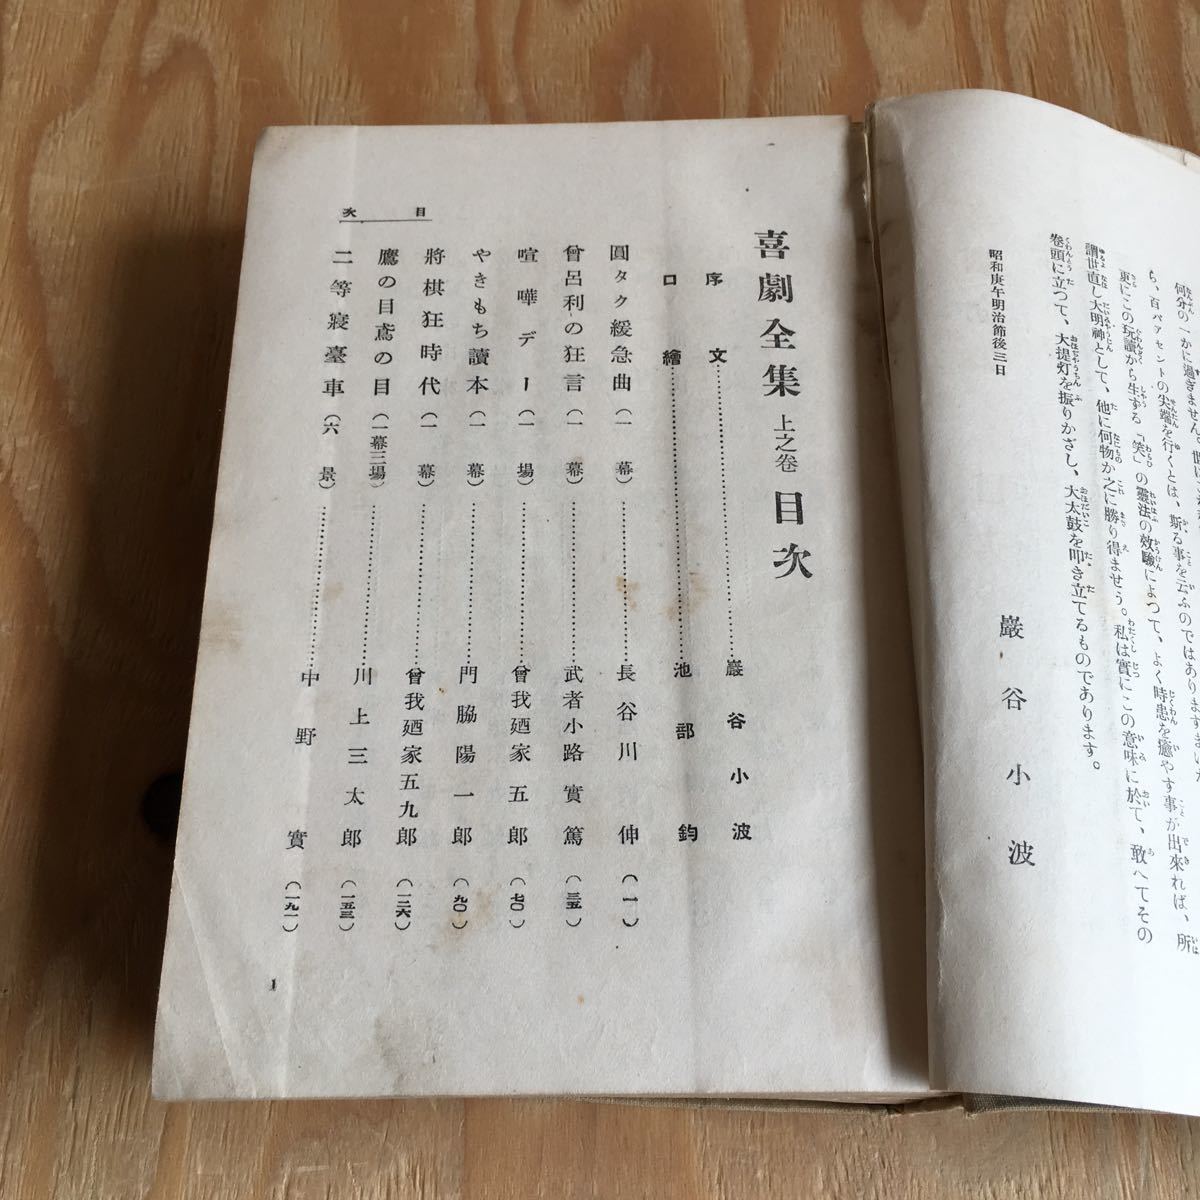 何分の一かに過ぎません。
ち、百パアセントの尖端を行くとは、斯る事を云ふのではありますまいか
更にこの玩讀から生ずる「笑」の靈法の効驗によつて、よく時患を癒やす事が出來れば、所
謂世直し大明神として、他に何物か之に勝り得ませう。私は實にこの意味に於て、敢へてその
卷頭に立つて、大提灯を振りかざし、大太鼓を叩き立てるものであります。
昭和庚午明治節後三日
巖谷小波
喜劇全集 上之卷 目次
序文……巖谷小波
口繪……池部鈞
圓タク緩急曲(一幕)……長谷川伸(一)
曾呂利の狂言(一幕)……武者小路實篤(三五)
喧嘩デー(一場)……曾我廼家五郎(七〇)
やきもち讀本(一幕)……門脇陽一郎(九〇)
將棋狂時代(一幕)……曾我廼家五九郎(一二六)
鷹の目鳶の目(一幕三場)……川上三太郎(一五三)
二等寢臺車(六景)……中野實(一九一)
目次
1